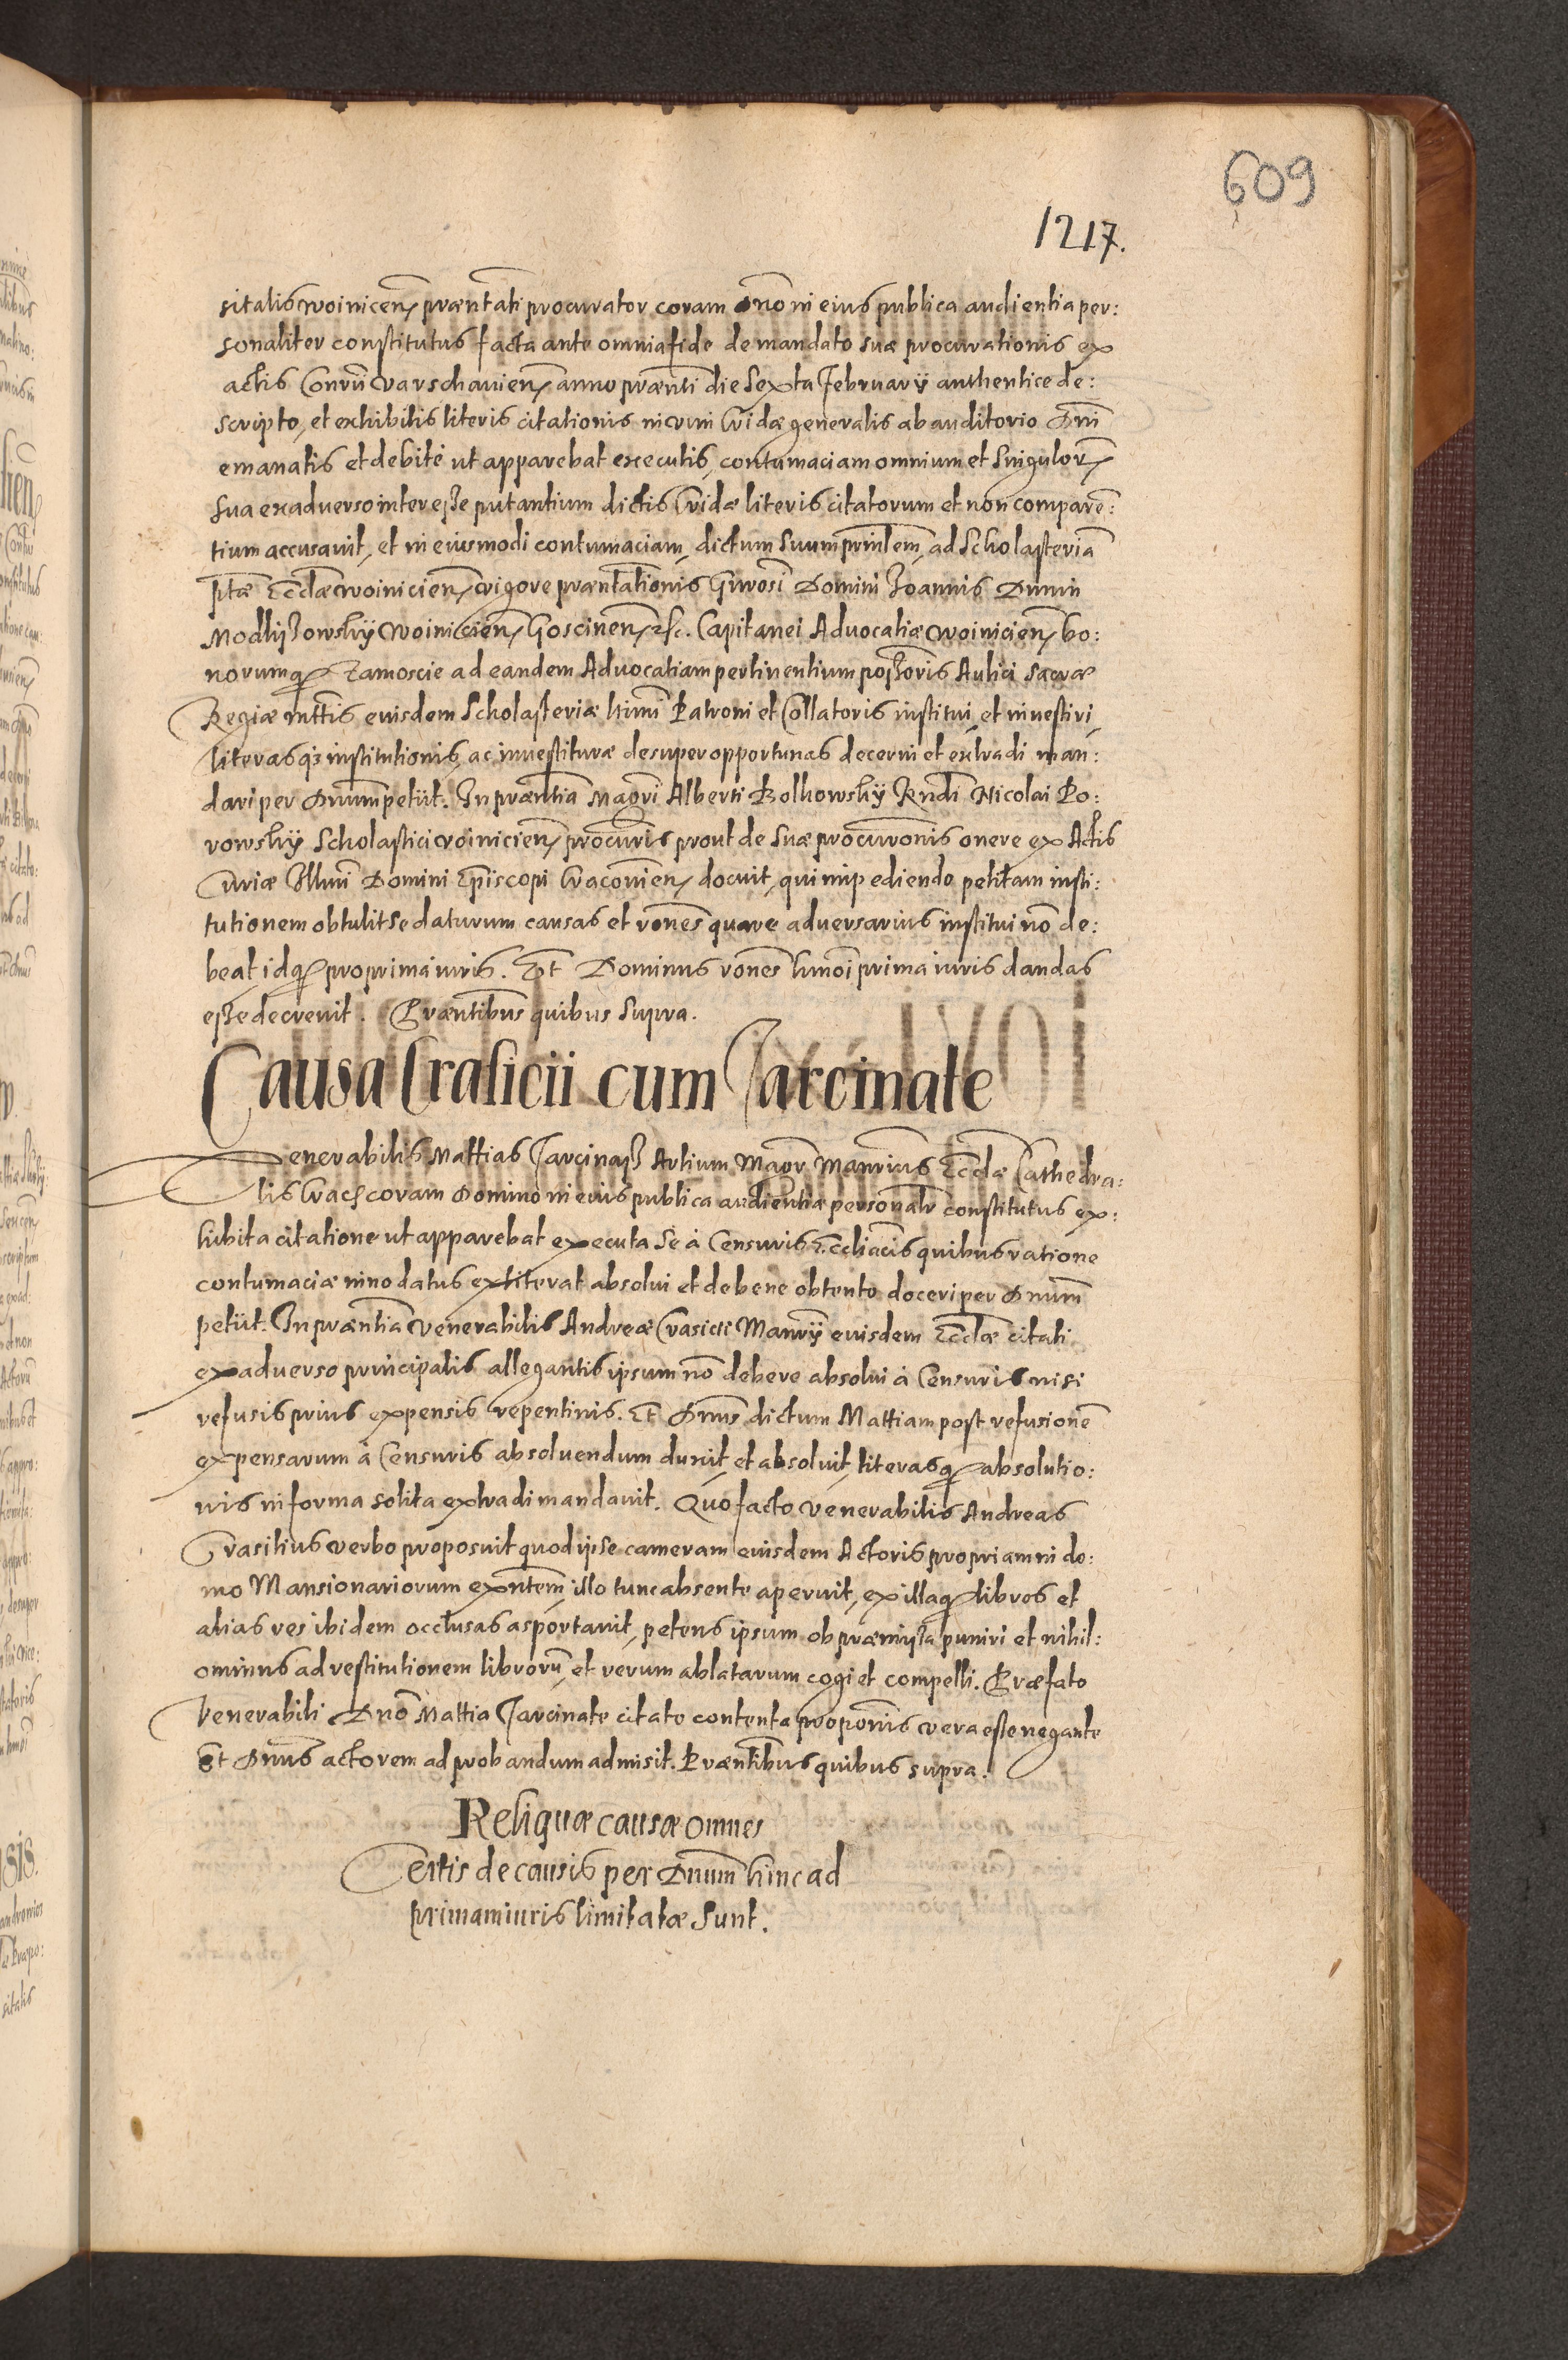 609
1217.
sitalis woinicen̄ praesentati procurator coram Dno in eius publica audientia per:
sonaliter constitutus facta ante omnia fide de mandato suae procurationis ex
actis Consrii Varschavien̄ anno praesenti die Sexta February authentice de:
scripto, et exhibitis literis citationis in vim Cridae generalis ab auditorio Dni
emanatis et debitè ut apparebat executis, contumaciam omnium et Singulorum
sua ex adverso interesse putantium dictis Cridae literis citatorum et non comparen:
tium accusavit, et in eiusmodi contumaciam, dictum Suum prinlem, ad Scholasteriā
ptae Eccłae woinicien̄ vigore praesentationis Gnrosi Domini Joannis Dunin
Modlissowsky woinicien̄ Goscinen̄ etc. Capitanei Advocatiae woinicien̄ bo:
norumq̃ Zamoscie ad eandem Advocatiam pertinentium possoris Aulici Sacrae
Regiae mttis eiusdem Scholasteriae ltimi Patroni et Collatoris institui, et investiri,
literasq̃ institutionis, ac investiturae desuper opportunas decerni et extradi man:
dari per Dnum petiit. In praesentia Magri Alberti Bolkowsky Rndi Nicolai Bo:
rowsky Scholastici woinicien̄ procuris prout de suae procurōnis onere ex Actis
Curiae Illmi Domini Episcopi Cracovien̄ docuit, qui impediendo petitam insti:
tutionem obtulit se daturum causas et rōnes quare adversarius institui nō de:
beat idq̃ pro prima iuris. Et Dominus rōnes hmōi prima iuris dandas
esse decrevit. Praesentibus quibus supra.
Causa Crasicii cum Jarcinate
Venerabilis Mattias Jarcinass Artium Magr Manrius Eccłae Cathedra:
lis Crac coram Domino in eius publica audientia personalr constitutus ex:
hibita citatione ut apparebat executa se à Censuris Ecclīacis quibus ratione
contumaciae innodatus extiterat absolvi et de bene obtento doceri per Dnum
petiit. In praesentia Venerabilis Andreae Crasicii Manrii eiusdem Eccłae citati
ex adverso principalis allegantis ipsum nō debere absolvi à Censuris nisi
refusis prius expensis repentinis. Et Dnus dictum Mattiam post refusionē
expensarum à Censuris absolvendum duxit, et absolvit, literasq̃ absolutio:
nis in forma solita extradi mandavit. Quo facto Venerabilis Andreas
Crasitius verbo proposuit quod ipse cameram eiusdem Actoris propriam in do:
mo Mansionariorum exntem, illo tunc absente aperuit, ex illaq̃ libros et
alias res ibidem occlusas asportavit, petens ipsum ob praemissa puniri et nihil:
ominus ad restitutionem librorū, et rerum ablatarum cogi et compelli. Praefato
Venerabili Dno Mattia Jarcinate citato contenta propōnis vera esse negante
Et Dnus actorem ad probandum admisit. Praesentibus quibus supra.
Reliquae causae omnes
Certis de causis per Dnum hinc ad
primam iuris limitatae sunt.